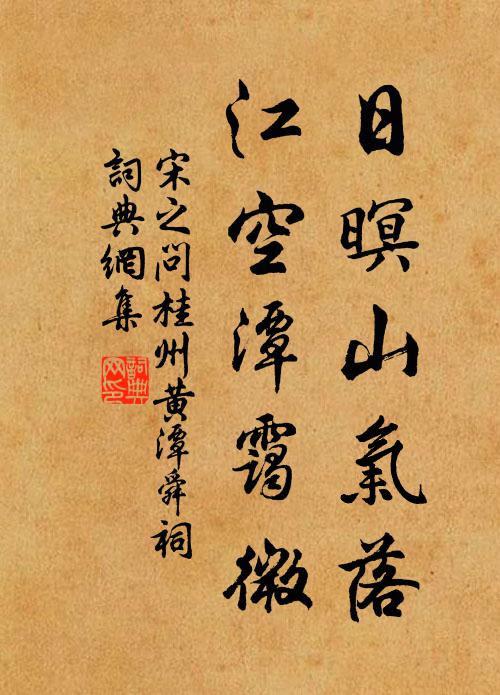 日暝山氣落
江空潭靄微
宋之問桂州黃潭舜祠
詞典網集
詞典网印